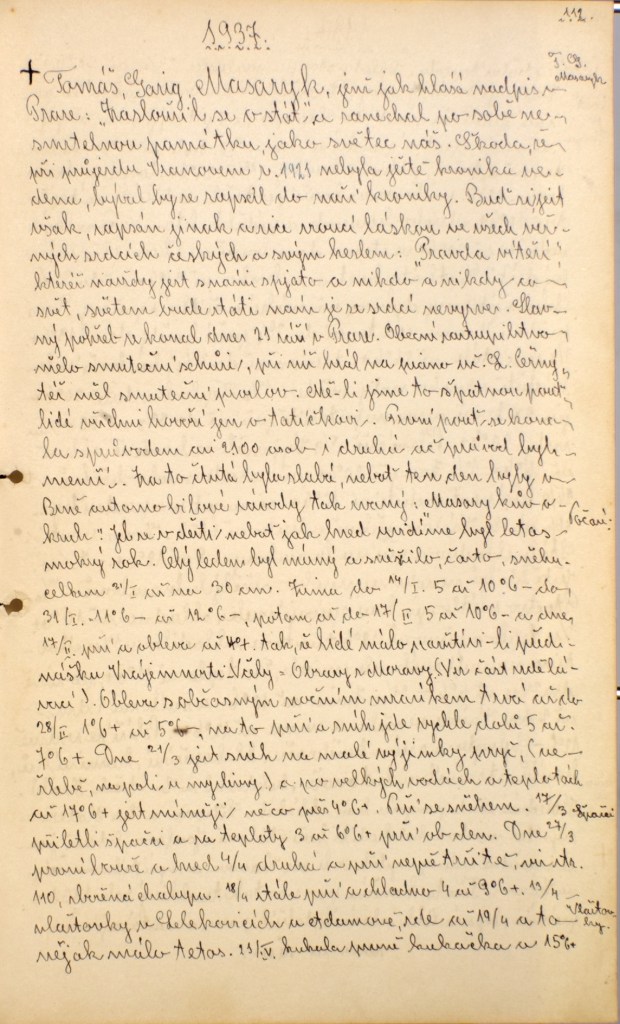 112.
1937.
T. G.
Masaryk
Tomáš, Garig, Masaryk, jenž jak hlásá nadpis v
Praze: "Zasloužil se o stát" a zanechal po sobě ne-
smrtelnou památku, jako světec náš. Škoda, že
při průjezdu Vranovem r. 1921 nebyla ještě kronika ve-
dena, býval by se zapsal do naší kroniky. Buď si jest
však, zapsán jinak a více vroucí láskou ve všech věr-
ných srdcích českých a svým heslem: "Pravda vítězí"
kteréž navždy jest s námi spjato a nikdo a nikdy co
svět, světem bude státi nám je se srdcí nevyrve. Slav-
ný pohřeb se konal dne 21 září v Praze. Obecní zastupitelstvo
mělo smuteční schůzi, při níž hrál na piano uč. L. Černý
též měl smuteční proslov. Mě-li jsme to špatnou pouť
lidé všichni hovoří jen o tatíčkovi. První pouť se kona-
la s průvodem asi 2100 osob i druhá ač průvod byl
menší. Za to čtutá byla slabá, neboť ten den byly v
Brně automobilové závody tak zvaný: Masarykův o-
kruh". Jel se v dešti neboť jak hned uvidíme byl letos
Počasí:
mokrý rok. Celý leden byl mírný a sněžilo, často, sněhu
celkem 21/I až na 30 cm. Zima do 14/I. 5 až 10°6- do
31/I. -11°6- až 12°6-, potom až do 17/II 5 až 10°6- a dne
17/II. prší a obleva až 4°+. tak, že lidé málo navštívi-li před-
nášku Vzájemnosti Včely = Obrazy z Moravy (Viz část vzdělá-
vací). Obleva s občasným nočním mrazíkem trvá až do
28/II 1°6+ až 5°6-, na to prší a sníh jde rychle dolů 5 až
7°6+. Dne 21/3 jest sníh na malé výjimky pryč, (ve
žlebě, na poli u myslivny) a po velkých vodách a teplotách
až 17°6+ jest mírněji něco přes 4°6+. Prší se sněhem. 17/3
Špačci
přiletli špačci a za teploty 3 až 6°6+ prší ob den. Dne 27/3
první bouře a hned 4/4 druhá a prší nepřetržitě, viz str.
110, zbořená chalupa. 18/4 stále prší a chladno 4 až 9°6+. 13/4
Vlaštov-
ky.
vlaštovky v Lelekovicích a Adamově, zde až 19/4 a to
nějak málo letos. 23/IV. kukala prvně kukačka a 15°6+